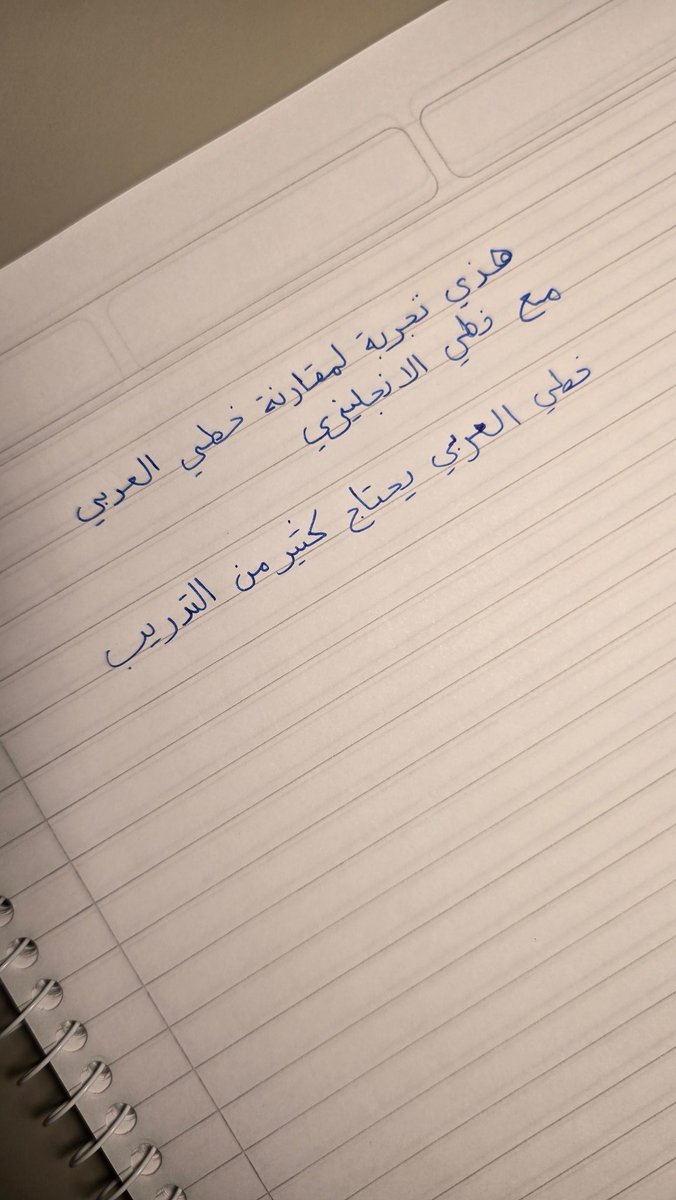 هذي تجربة لمقارنة خطي العربي
مع خطي الانجليزي
خطي العربي يحتاج كثير من التدريب